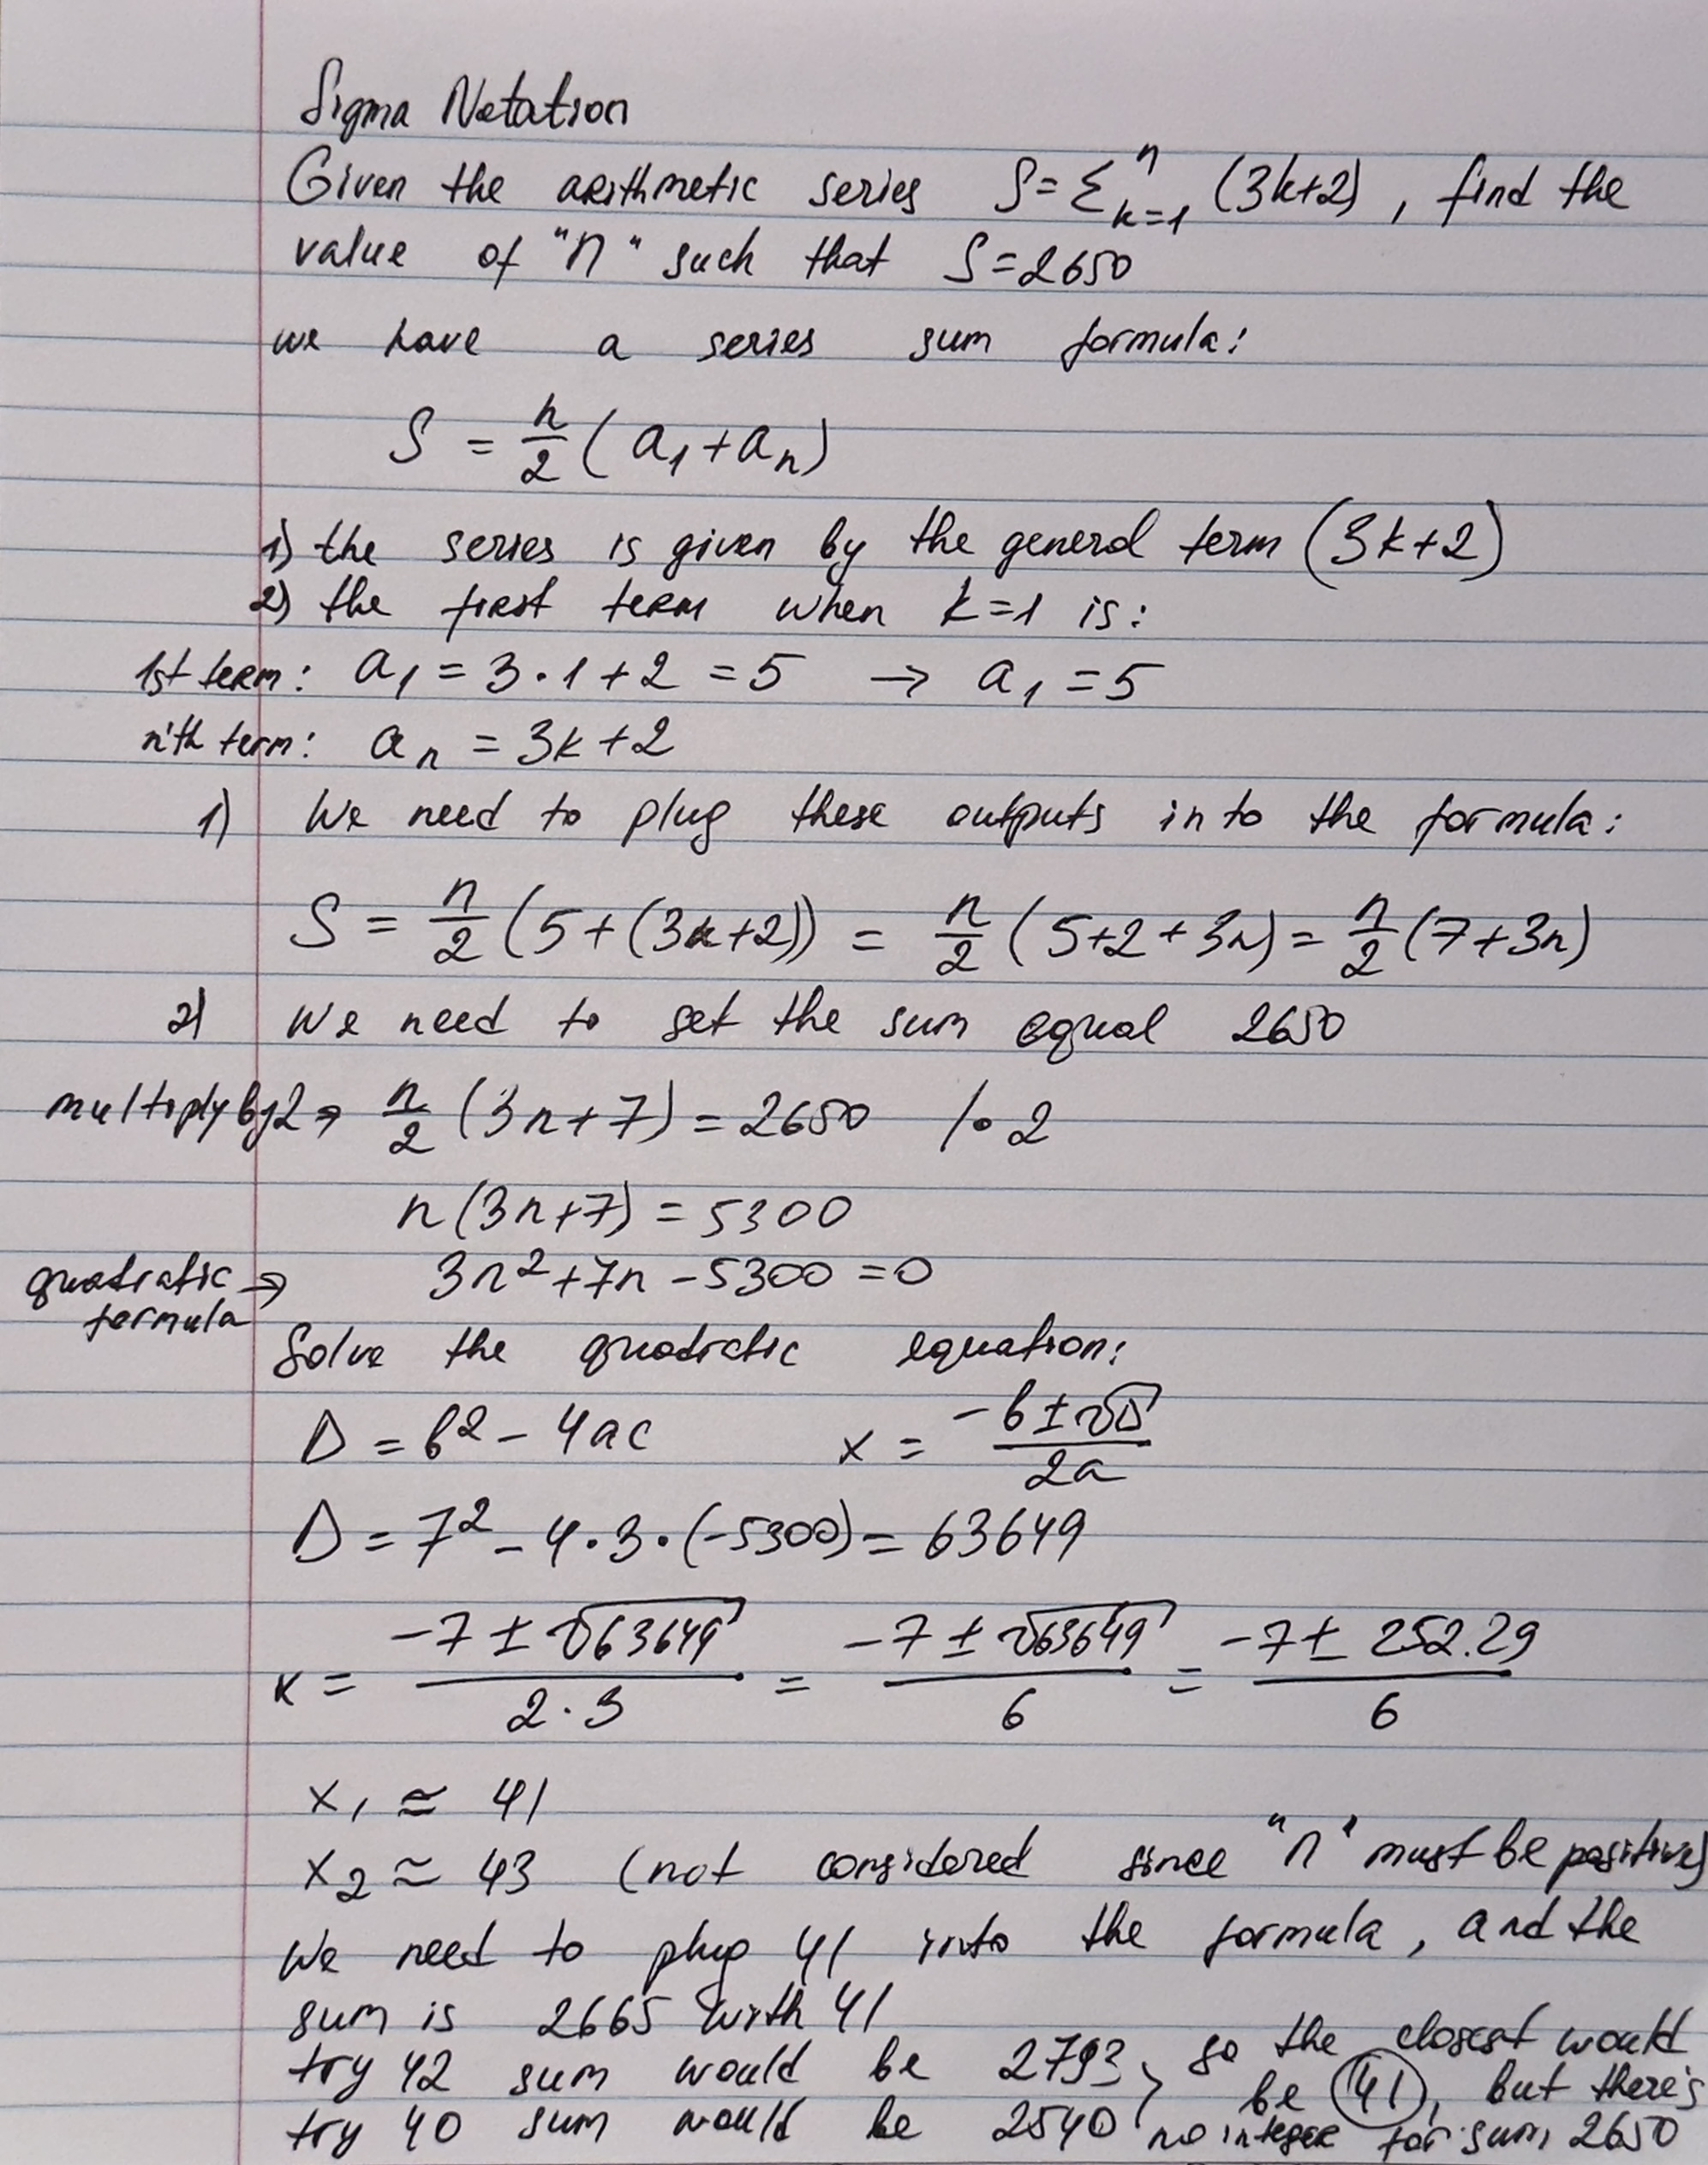 Sigma Notation
Given the arithmetic series S=Σₖ₌₁ⁿ (3k+2), find the
value of "n" such that S=2650
we have a series sum formula:
S = n/2 (a₁+aₙ)
1) the series is given by the general term (3k+2)
2) the first term when k=1 is:
1st term: a₁ = 3·1+2 = 5 → a₁ = 5
n'th term: aₙ = 3k+2
1) We need to plug these outputs into the formula:
S = n/2 (5+(3n+2)) = n/2 (5+2+3n) = n/2 (7+3n)
2) We need to set the sum equal 2650
multiply by 2 → n/2 (3n+7) = 2650 /·2
n(3n+7) = 5300
quadratic formula → 3n²+7n-5300=0
Solve the quadratic equation:
D = b²-4ac x = (-b±√D)/2a
D = 7²-4·3·(-5300) = 63649
x = (-7±√63649)/(2·3) = (-7±√63649)/6 = (-7±252.29)/6
x₁ ≃ 41
x₂ ≃ 43 (not considered since "n" must be positive)
We need to plug 41 into the formula, and the
sum is 2665 with 41
try 42 sum would be 2793, so the closest would
try 40 sum would be 2540 be 41, but there's
no integer for sum 2650